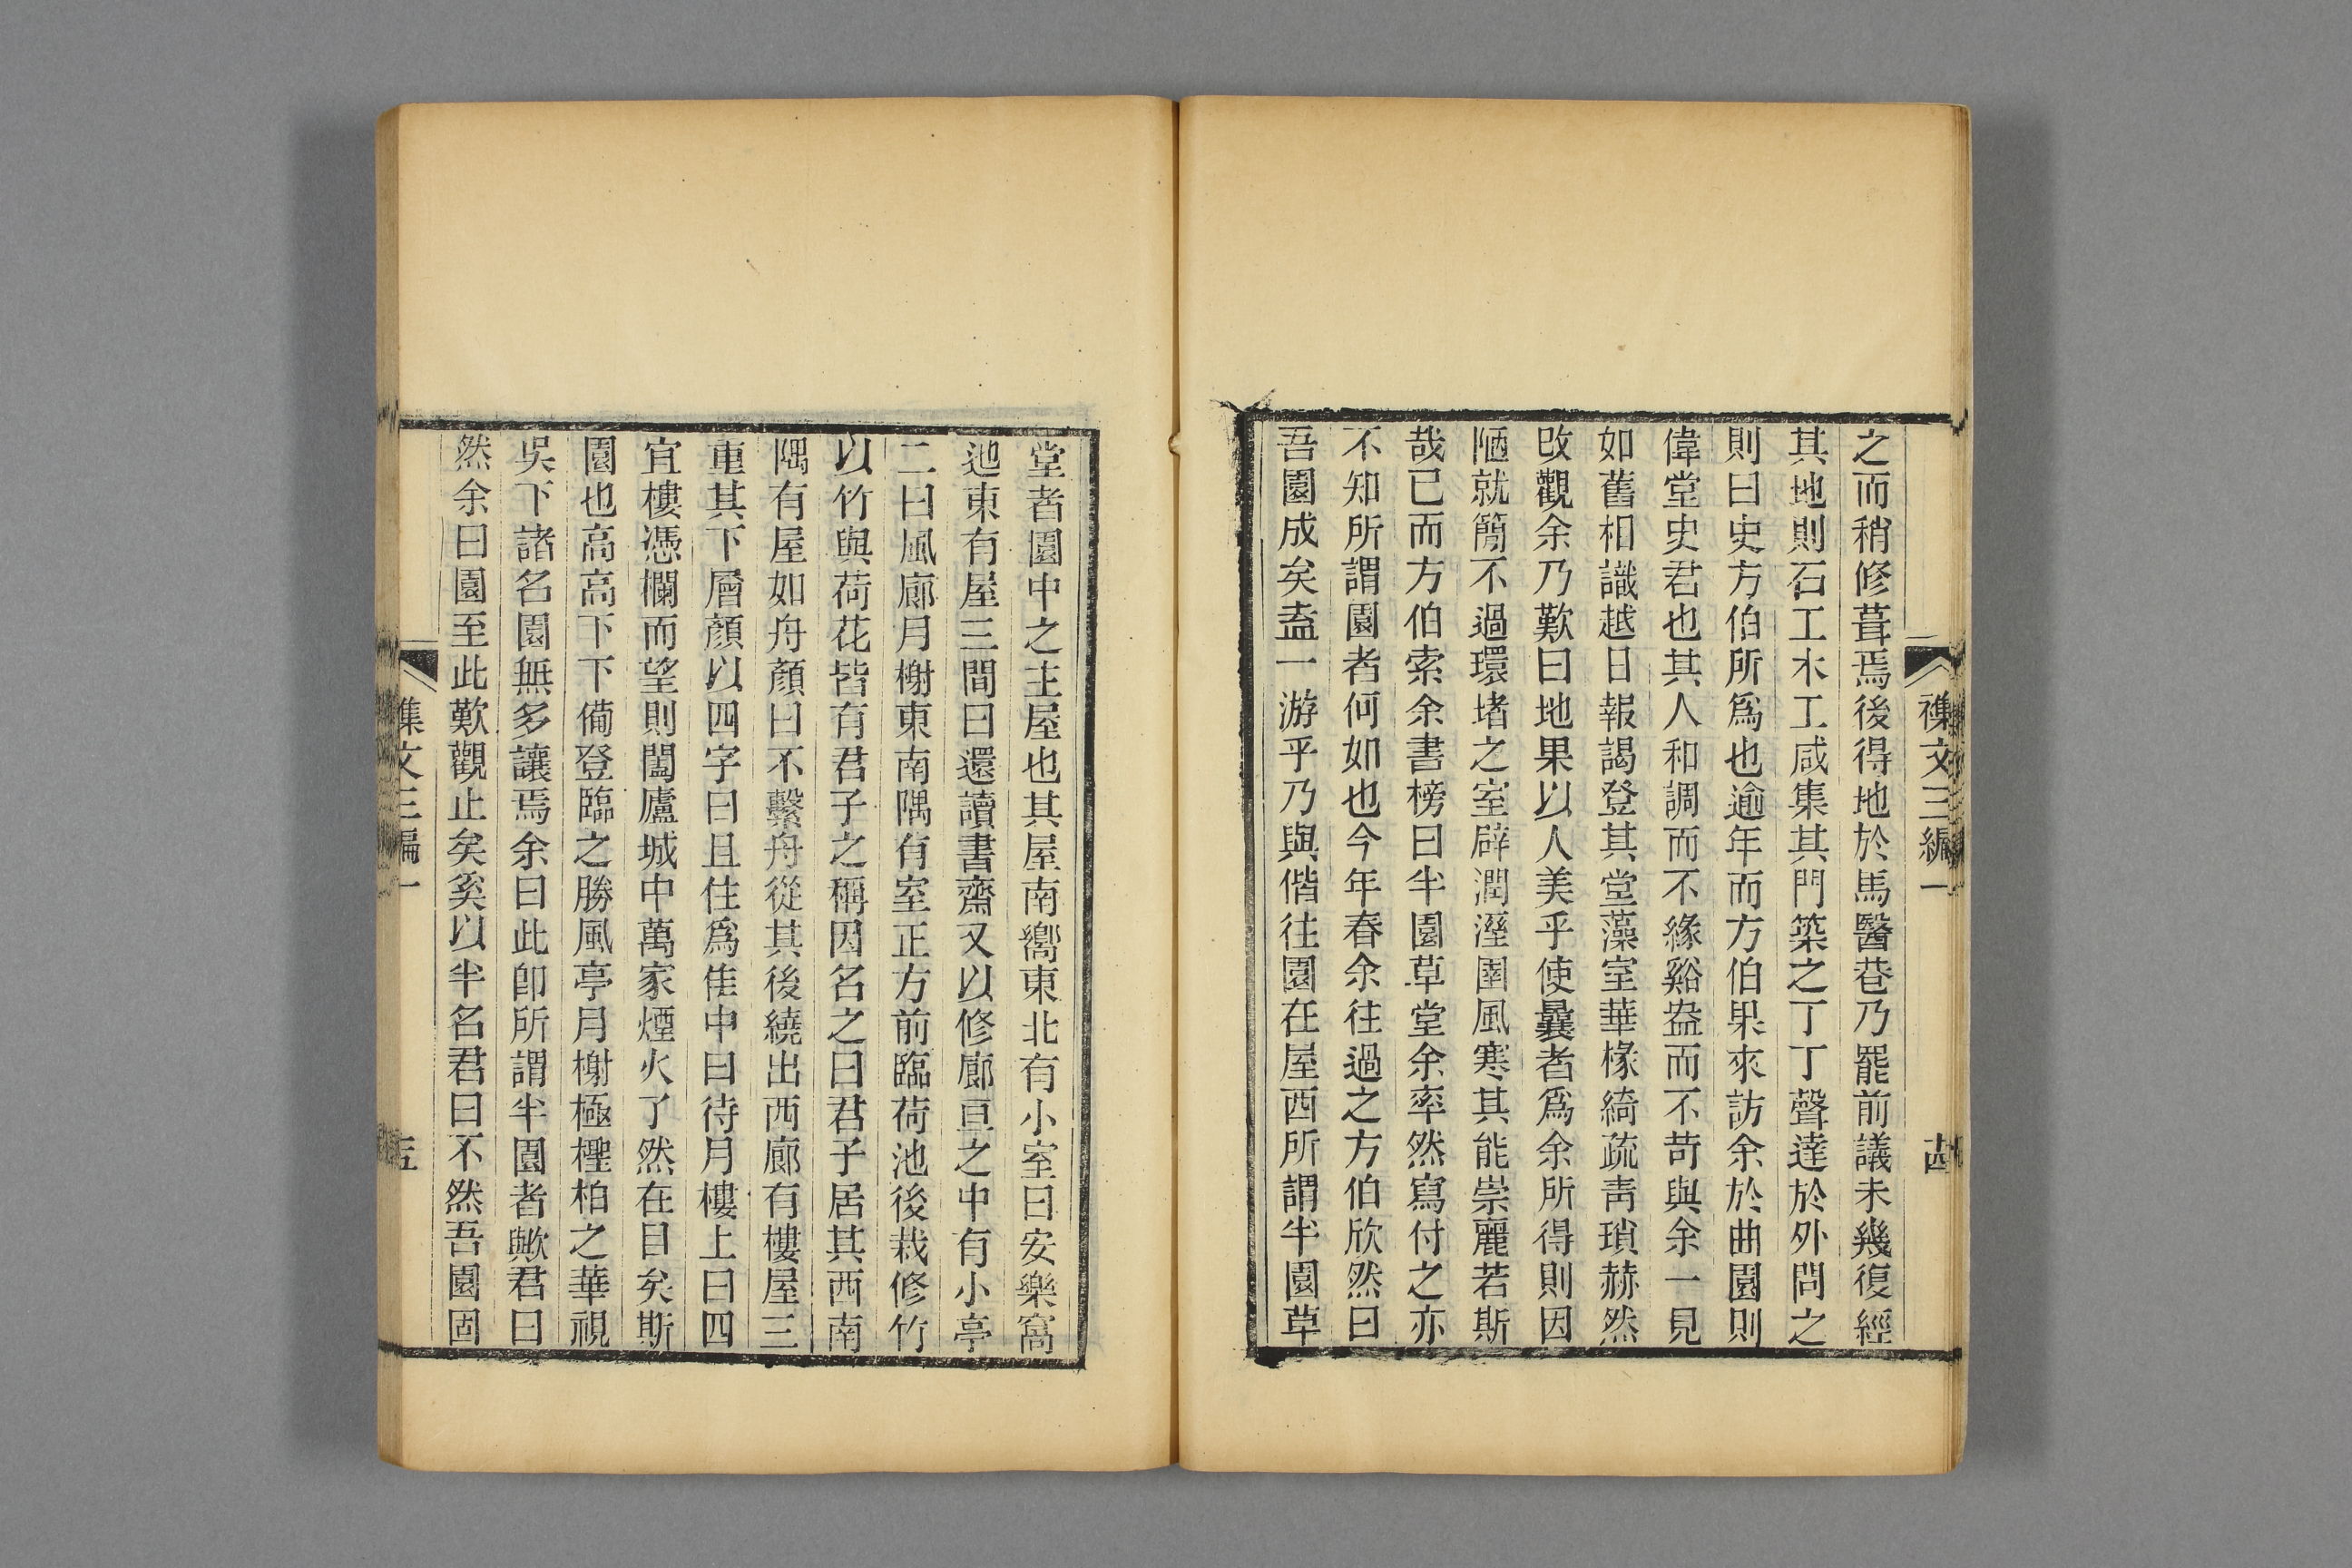 襍文三編一
十四
之而稍修葺焉後得地於馬醫巷乃罷前議未幾復經
其地則石工木工咸集其門築之丁丁聲達於外問之
則曰史方伯所爲也逾年而方伯果來訪余於曲園則
偉堂史君也其人和調而不緣谿盎而不苛與余一見
如舊相識越日報謁登其堂藻室華椽綺疏靑瑣赫然
改觀余乃歎曰地果以人美乎使曩者爲余所得則因
陋就簡不過環堵之室辟潤溼圉風寒其能崇麗若斯
哉已而方伯索余書榜曰半園草堂余率然寫付之亦
不知所謂園者何如也今年春余往過之方伯欣然曰
吾園成矣盍一游乎乃與偕往園在屋西所謂半園草
堂者園中之主屋也其屋南嚮東北有小室曰安樂窩
池東有屋三間曰還讀書齋又以修廊亘之中有小亭
二曰風廊月榭東南隅有室正方前臨荷池後栽修竹
以竹與荷花皆有君子之稱因名之曰君子居其西南
隅有屋如舟顏曰不繫舟從其後繞出西廊有樓屋三
重其下層顏以四字曰且住爲佳中曰待月樓上曰四
宜樓憑欄而望則闔廬城中萬家煙火了然在目矣斯
園也高高下下備登臨之勝風亭月榭極檉柏之華視
吳下諸名園無多讓焉余曰此卽所謂半園者歟君曰
然余曰園至此歎觀止矣奚以半名君曰不然吾園固
集文三編一
五